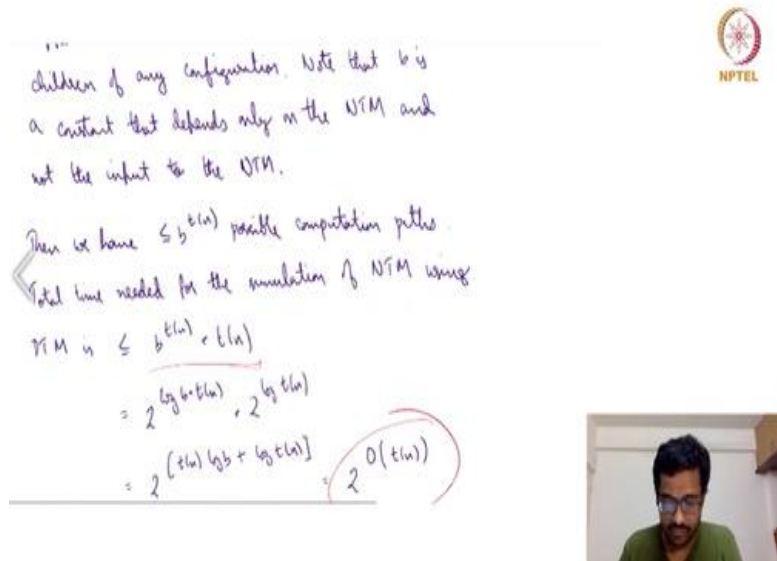 children of any configuration. Note that b is
a constant that depends only on the NTM and
not the input to the NTM.
Then we have ≤ b^{t(n)} possible computation paths.
Total time needed for the simulation of NTM using
DTM is ≤ b^{t(n)} · t(n)
= 2^{log b · t(n)} · 2^{log t(n)}
= 2^{[t(n) log b + log t(n)]} = 2^{O(t(n))}
NPTEL